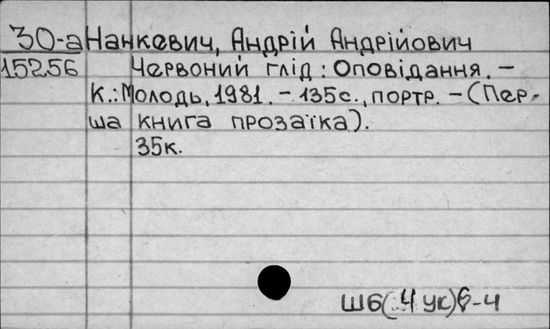 30-а Нанкевич, Андрій Андрійович
15256 Червоний глід : Оповідання. –
К.: Молодь, 1981. – 135с., портр. – (Пер-
ша книга прозаїка).
35к.
Ш6(4 Ук)6-4